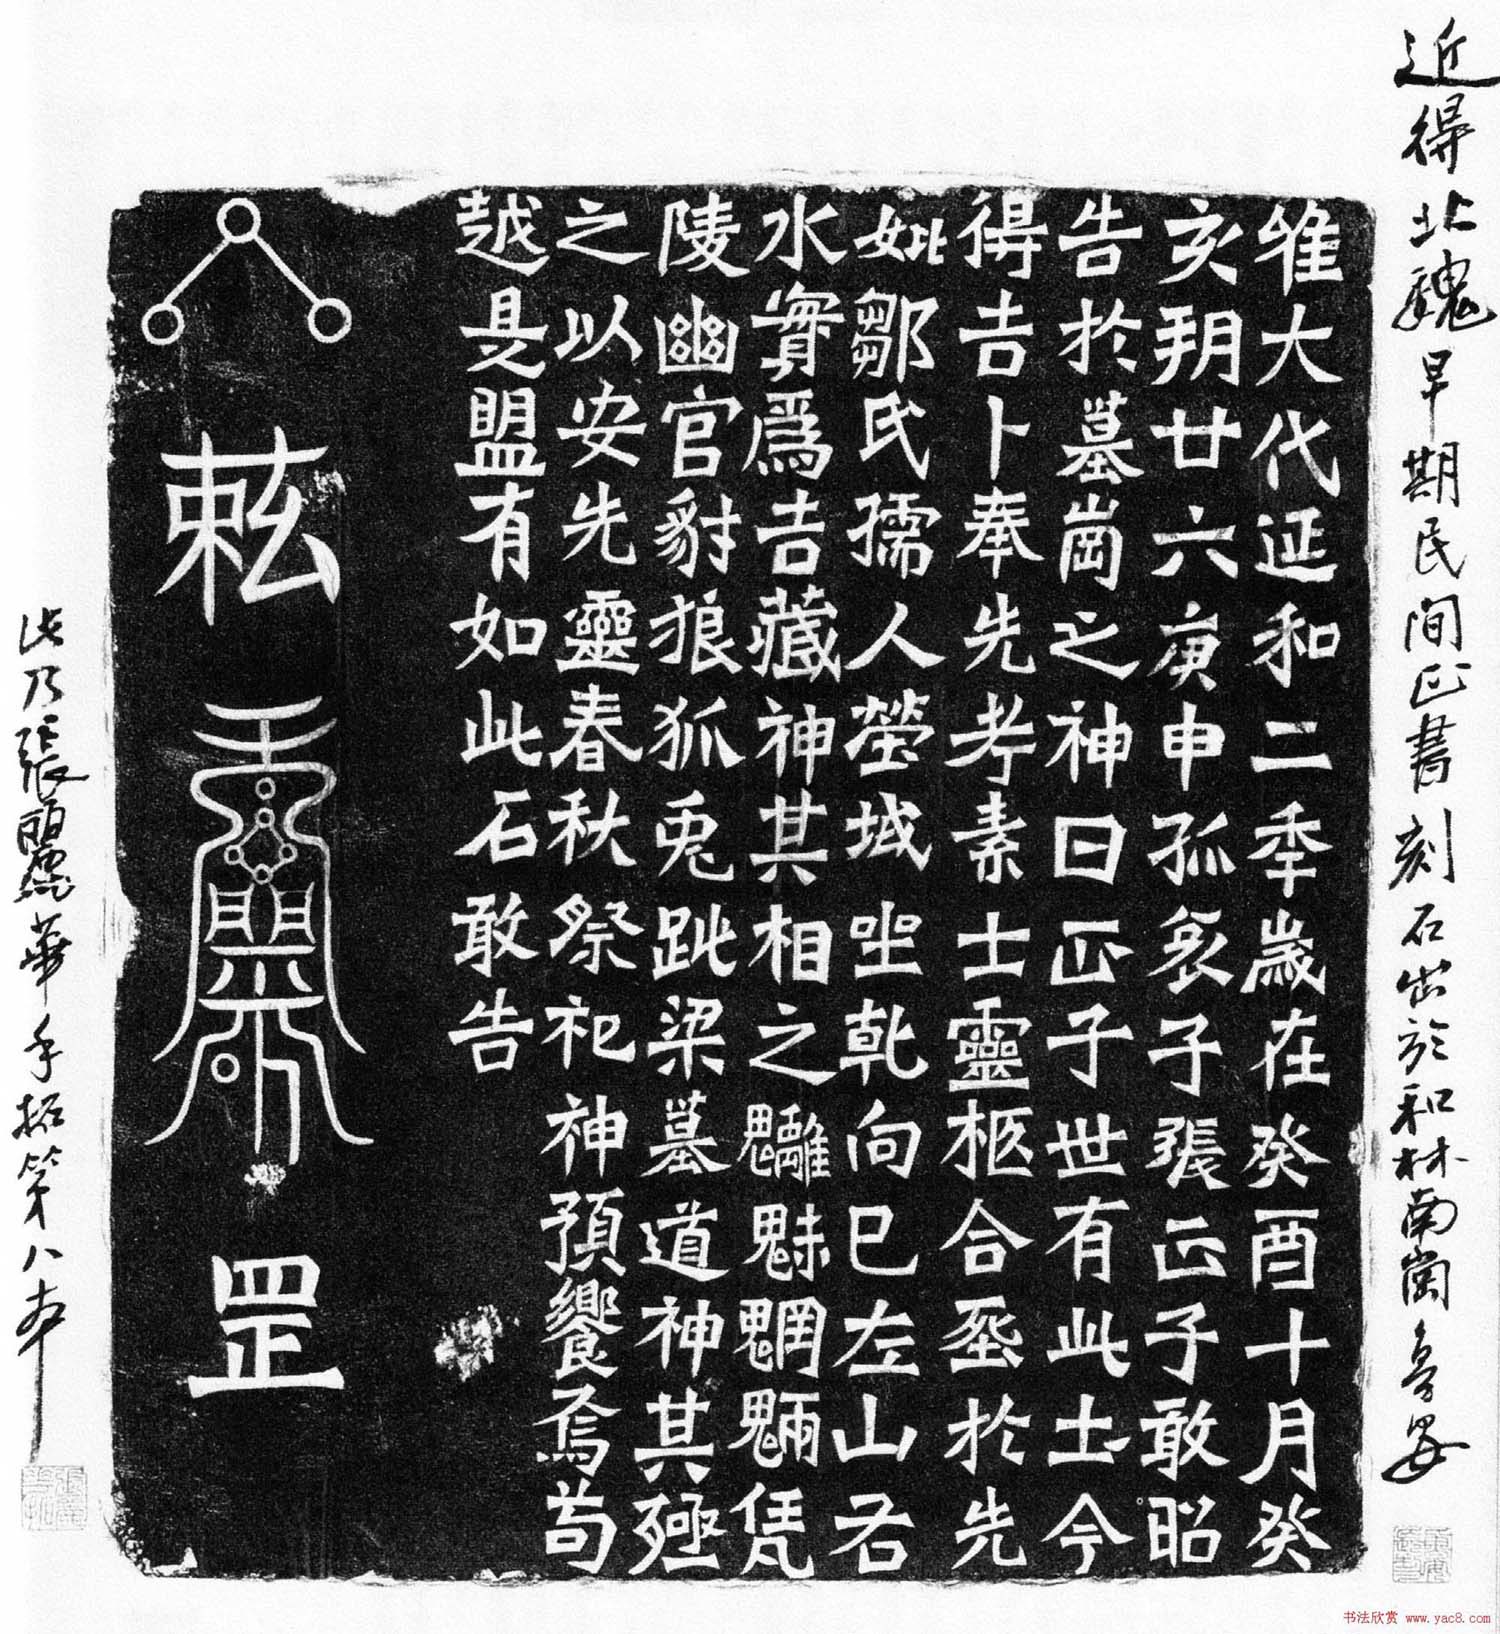 近得北魏早期民間正書刻石出於和林南崗
維大代延和二秊歲在癸酉十月癸
亥朔廿六庚申孤哀子張正子敢昭
告於墓崗之神曰正子世有此土今
得吉卜奉先考素士靈柩合垩於先
妣鄒氏孺人塋域坐乾向巳左山右
水實爲吉藏神其相之魑魅魍魎凭
陵幽宫豺狼狐兎跳梁墓道神其殛
之以安先靈春秋祭祀神預饗焉苟
越是盟有如此石敢告
罡
此乃張麗華手拓第八本
书法欣赏 www.yac8.com